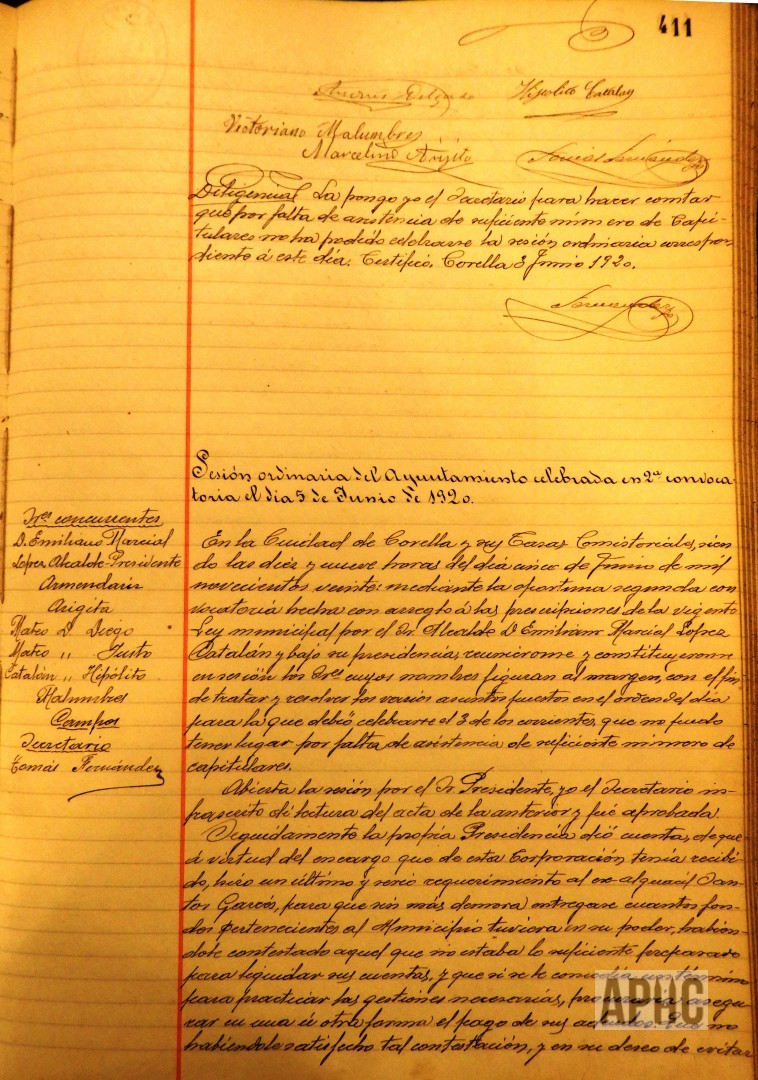 411
Andrés Delgado Hipólito Catalán
Victoriano Malumbres
Marcelino Arigita Tomás Fernández
Diligencia. La pongo yo el Secretario para hacer constar
que por falta de asistencia de suficiente número de Capi-
tulares no ha podido celebrarse la sesión ordinaria correspon-
diente á este día. Certifico. Corella 3 Junio 1920.
Fernández
Sesión ordinaria del Ayuntamiento celebrada en 2ª convoca-
toria el día 5 de Junio de 1920.
Sres concurrentes
D. Emiliano Marcial
López Alcalde-Presidente
Armendariz
Arigita
Mateo D. Diego
Mateo " Justo
Catalán " Hipólito
Malumbres
Campos
Secretario
Tomás Fernández
En la Ciudad de Corella y sus Casas Consistoriales, sien-
do las diez y nueve horas del día cinco de Junio de mil
novecientos veinte: mediante la oportuna segunda con-
vocatoria hecha con arreglo á las prescripciones de la vigente
Ley municipal por el Sr. Alcalde D. Emiliano Marcial López
Catalán y bajo su presidencia, reuniéronse y constituyéronse
en sesión los Sres cuyos nombres figuran al margen, con el fin
de tratar y resolver los varios asuntos puestos en el orden del día
para la que debió celebrarse el 3 de los corrientes, que no pudo
tener lugar por falta de asistencia de suficiente número de
capitulares.
Abierta la sesión por el Sr. Presidente, yo el Secretario in-
frascrito dí lectura del acta de la anterior y fué aprobada.
Seguidamente la propia Presidencia dió cuenta, de que
á virtud del encargo que de esta Corporación tenía recibi-
do, hizo un último y serio requerimiento al ex-alguacil San-
tos Garcés, para que sin más demora entregase cuantos fon-
dos pertenecientes al Municipio tuviera en su poder, habién-
dole contestado aquel que no estaba lo suficiente preparado
para liquidar sus cuentas, y que si se le concedía un término
para practicar las gestiones necesarias, procuraría asegu-
rar en una ú otra forma el pago de sus adeudos. Que no
habiéndole satisfecho tal contestación, y en su deseo de evitar
APHC